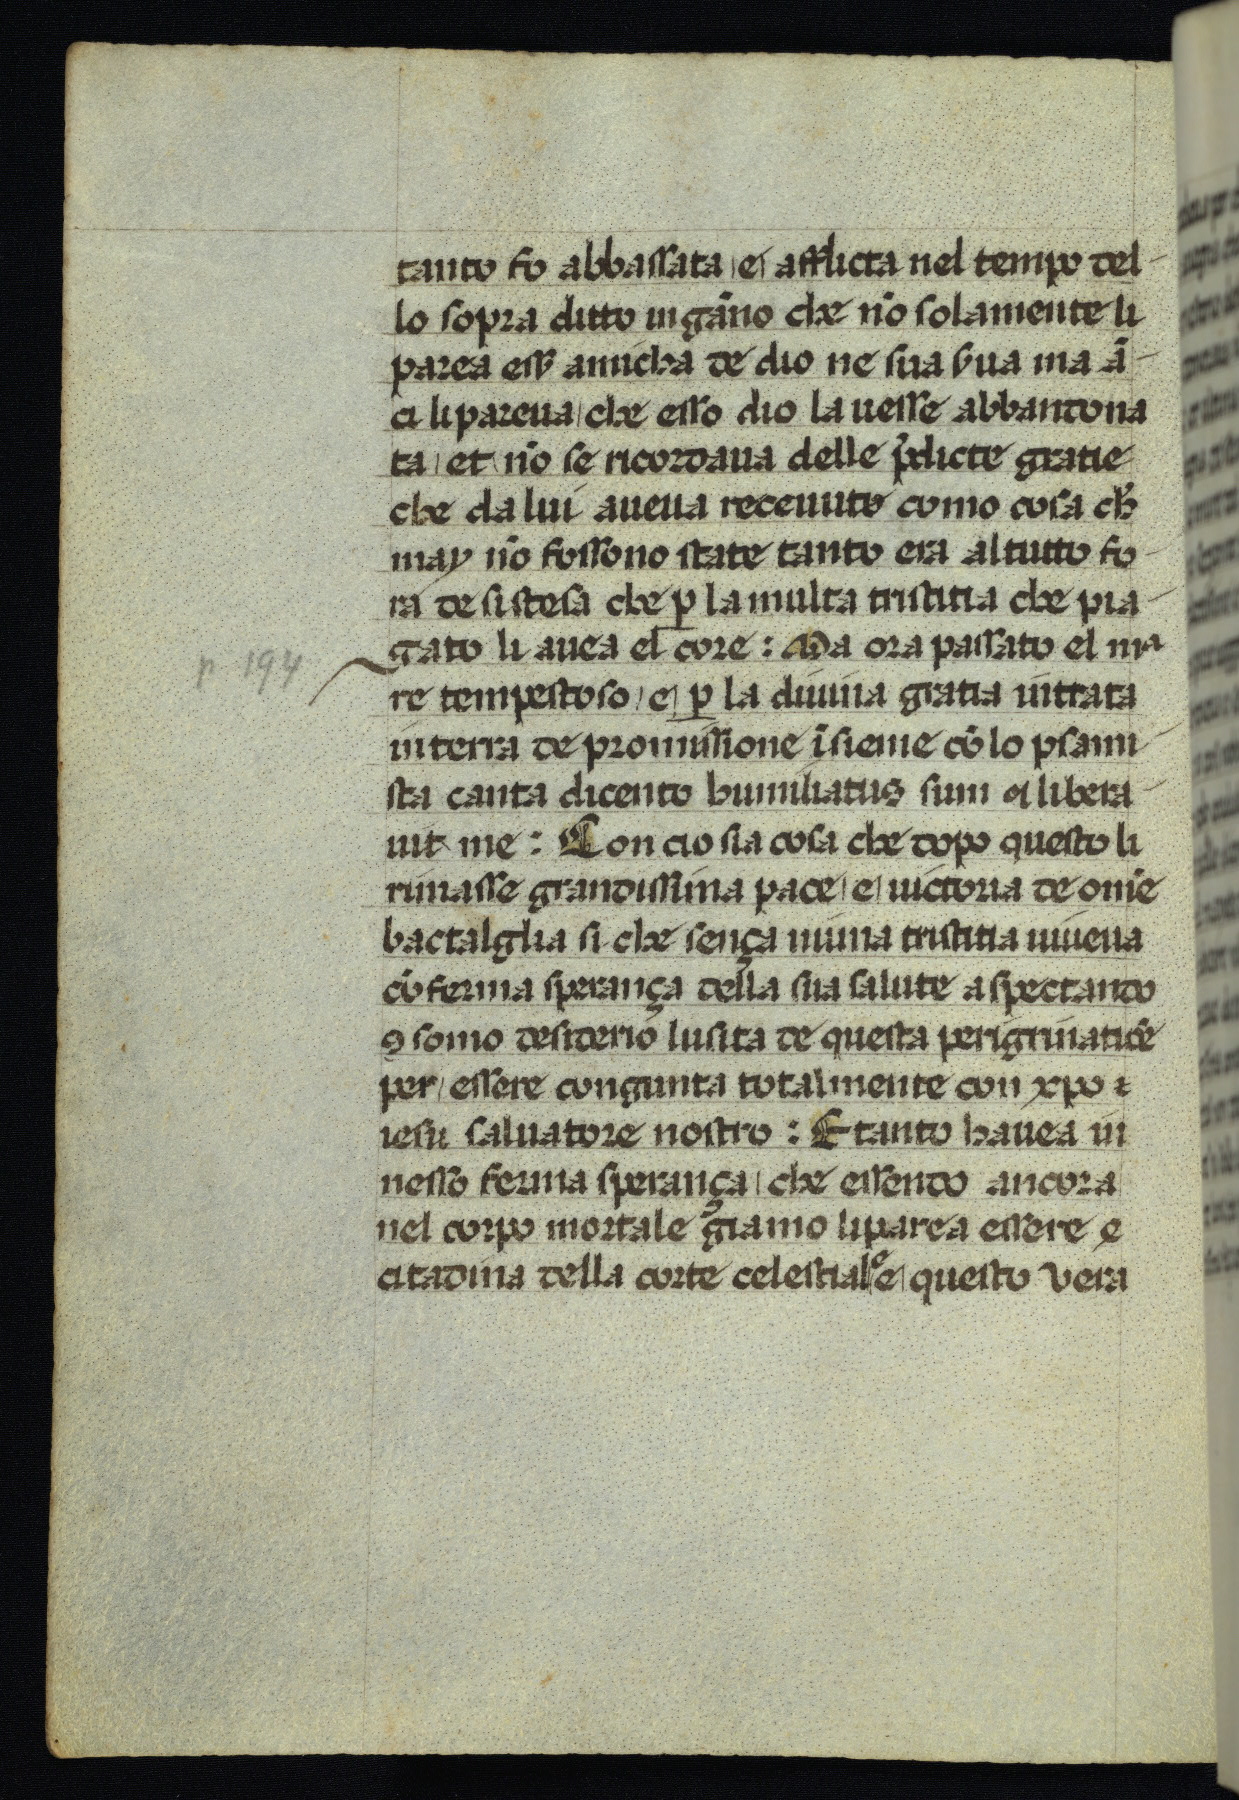 tanto fo abbassata e afflicta nel tempo del
lo sopra ditto ingāno che nō solamente li
parea ess̄ amicha de dio ne sua s̄ua ma ā
ci li pareua che esso dio lauesse abbandona
ta et nō se ricordaua delle p̄dicte gratie
che da lui aueua receuuto como cosa ch̄
may nō fossono state tanto era al tutto fo
ra de si stesa che ꝑ la multa tristitia che pia
gato li auea el core : Ma ora passato el maͬ
p 194
re tempestoso e ꝑ la diuina gratia intrata
in terra de promissione īsieme cō lo psami
sta canta dicendo humiliatus sum ⁊ libera
uit me : Con cio sia cosa che dopo questo li
rimasse grandissima pace e uictoria de onīe
bactalglia si che sença niuna tristitia uiueua
cō ferma sperança della sua salute aspectando
ꝯ somo desiderio lusita de questa perigrinatiōe
per essere congunta totalmente con xpo
iesu saluatore nostro : E tanto hauea in
nesso ferma sperança che essendo ancora
nel corpo mortale giamo li parea essere
citadina della corte celestiale e questo vera